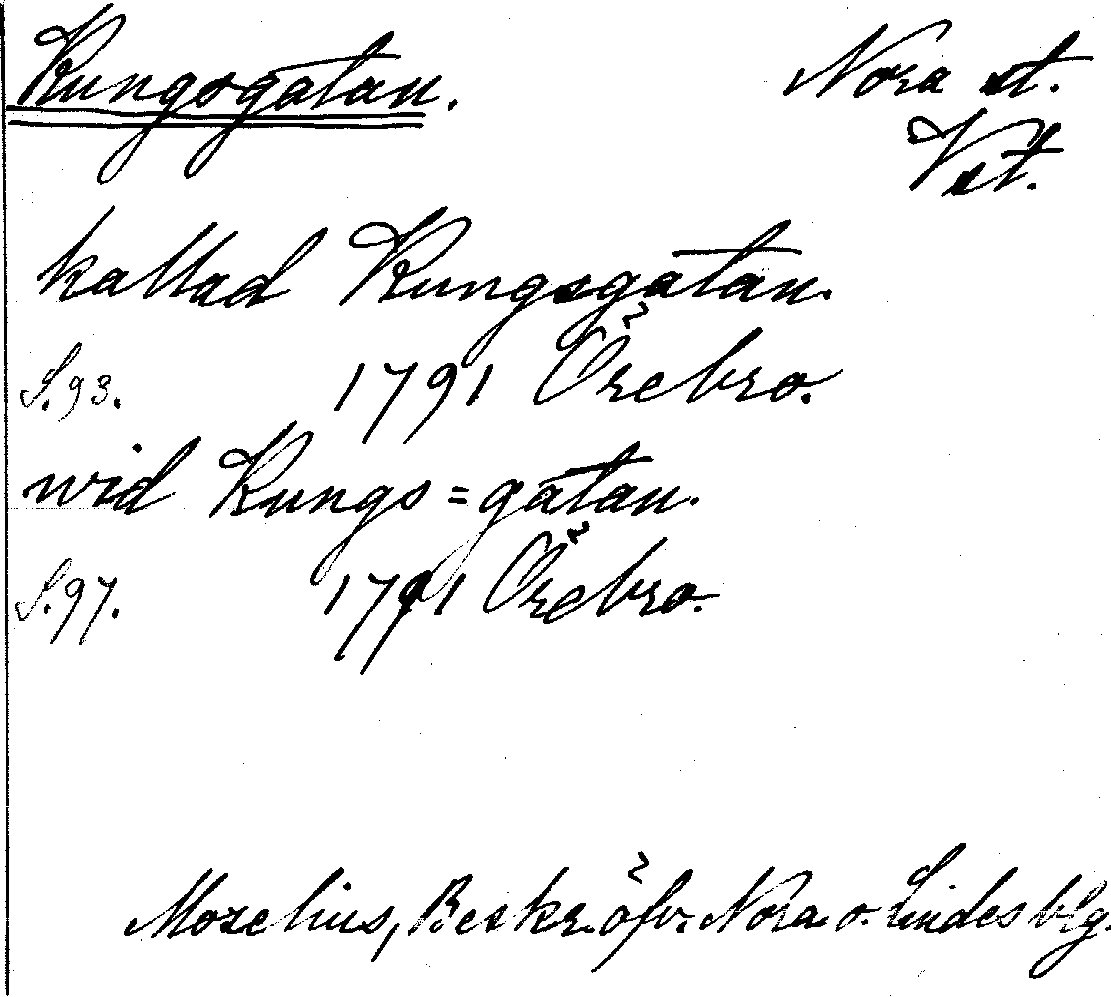 Kungsgatan. Nora st.
Vst.
kallad Kungsgatan.
S.93. 1791 Örebro.
wid Kungs=gatan.
S.97. 1791 Örebro.
Mozelius, Beskr. öfv. Nora o. Lindes blg.